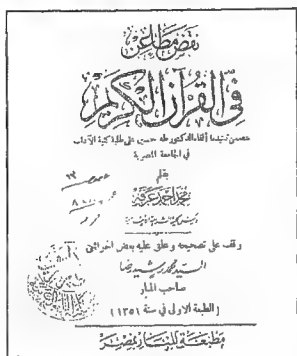 نقض مطاعن
في القرآن الكريم
يتضمن تفنيد ما ألقاه الدكتور طه حسين على طلبة كلية الآداب
في الجامعة المصرية
بقلم
محمد أحمد عرفة
وقف على تصحيحه وعلق عليه بعض الحواشي
السيد محمد رشيد رضا
صاحب المنار
(الطبعة الاولى في سنة ١٣٥١)
مطبعة المنار بمصر